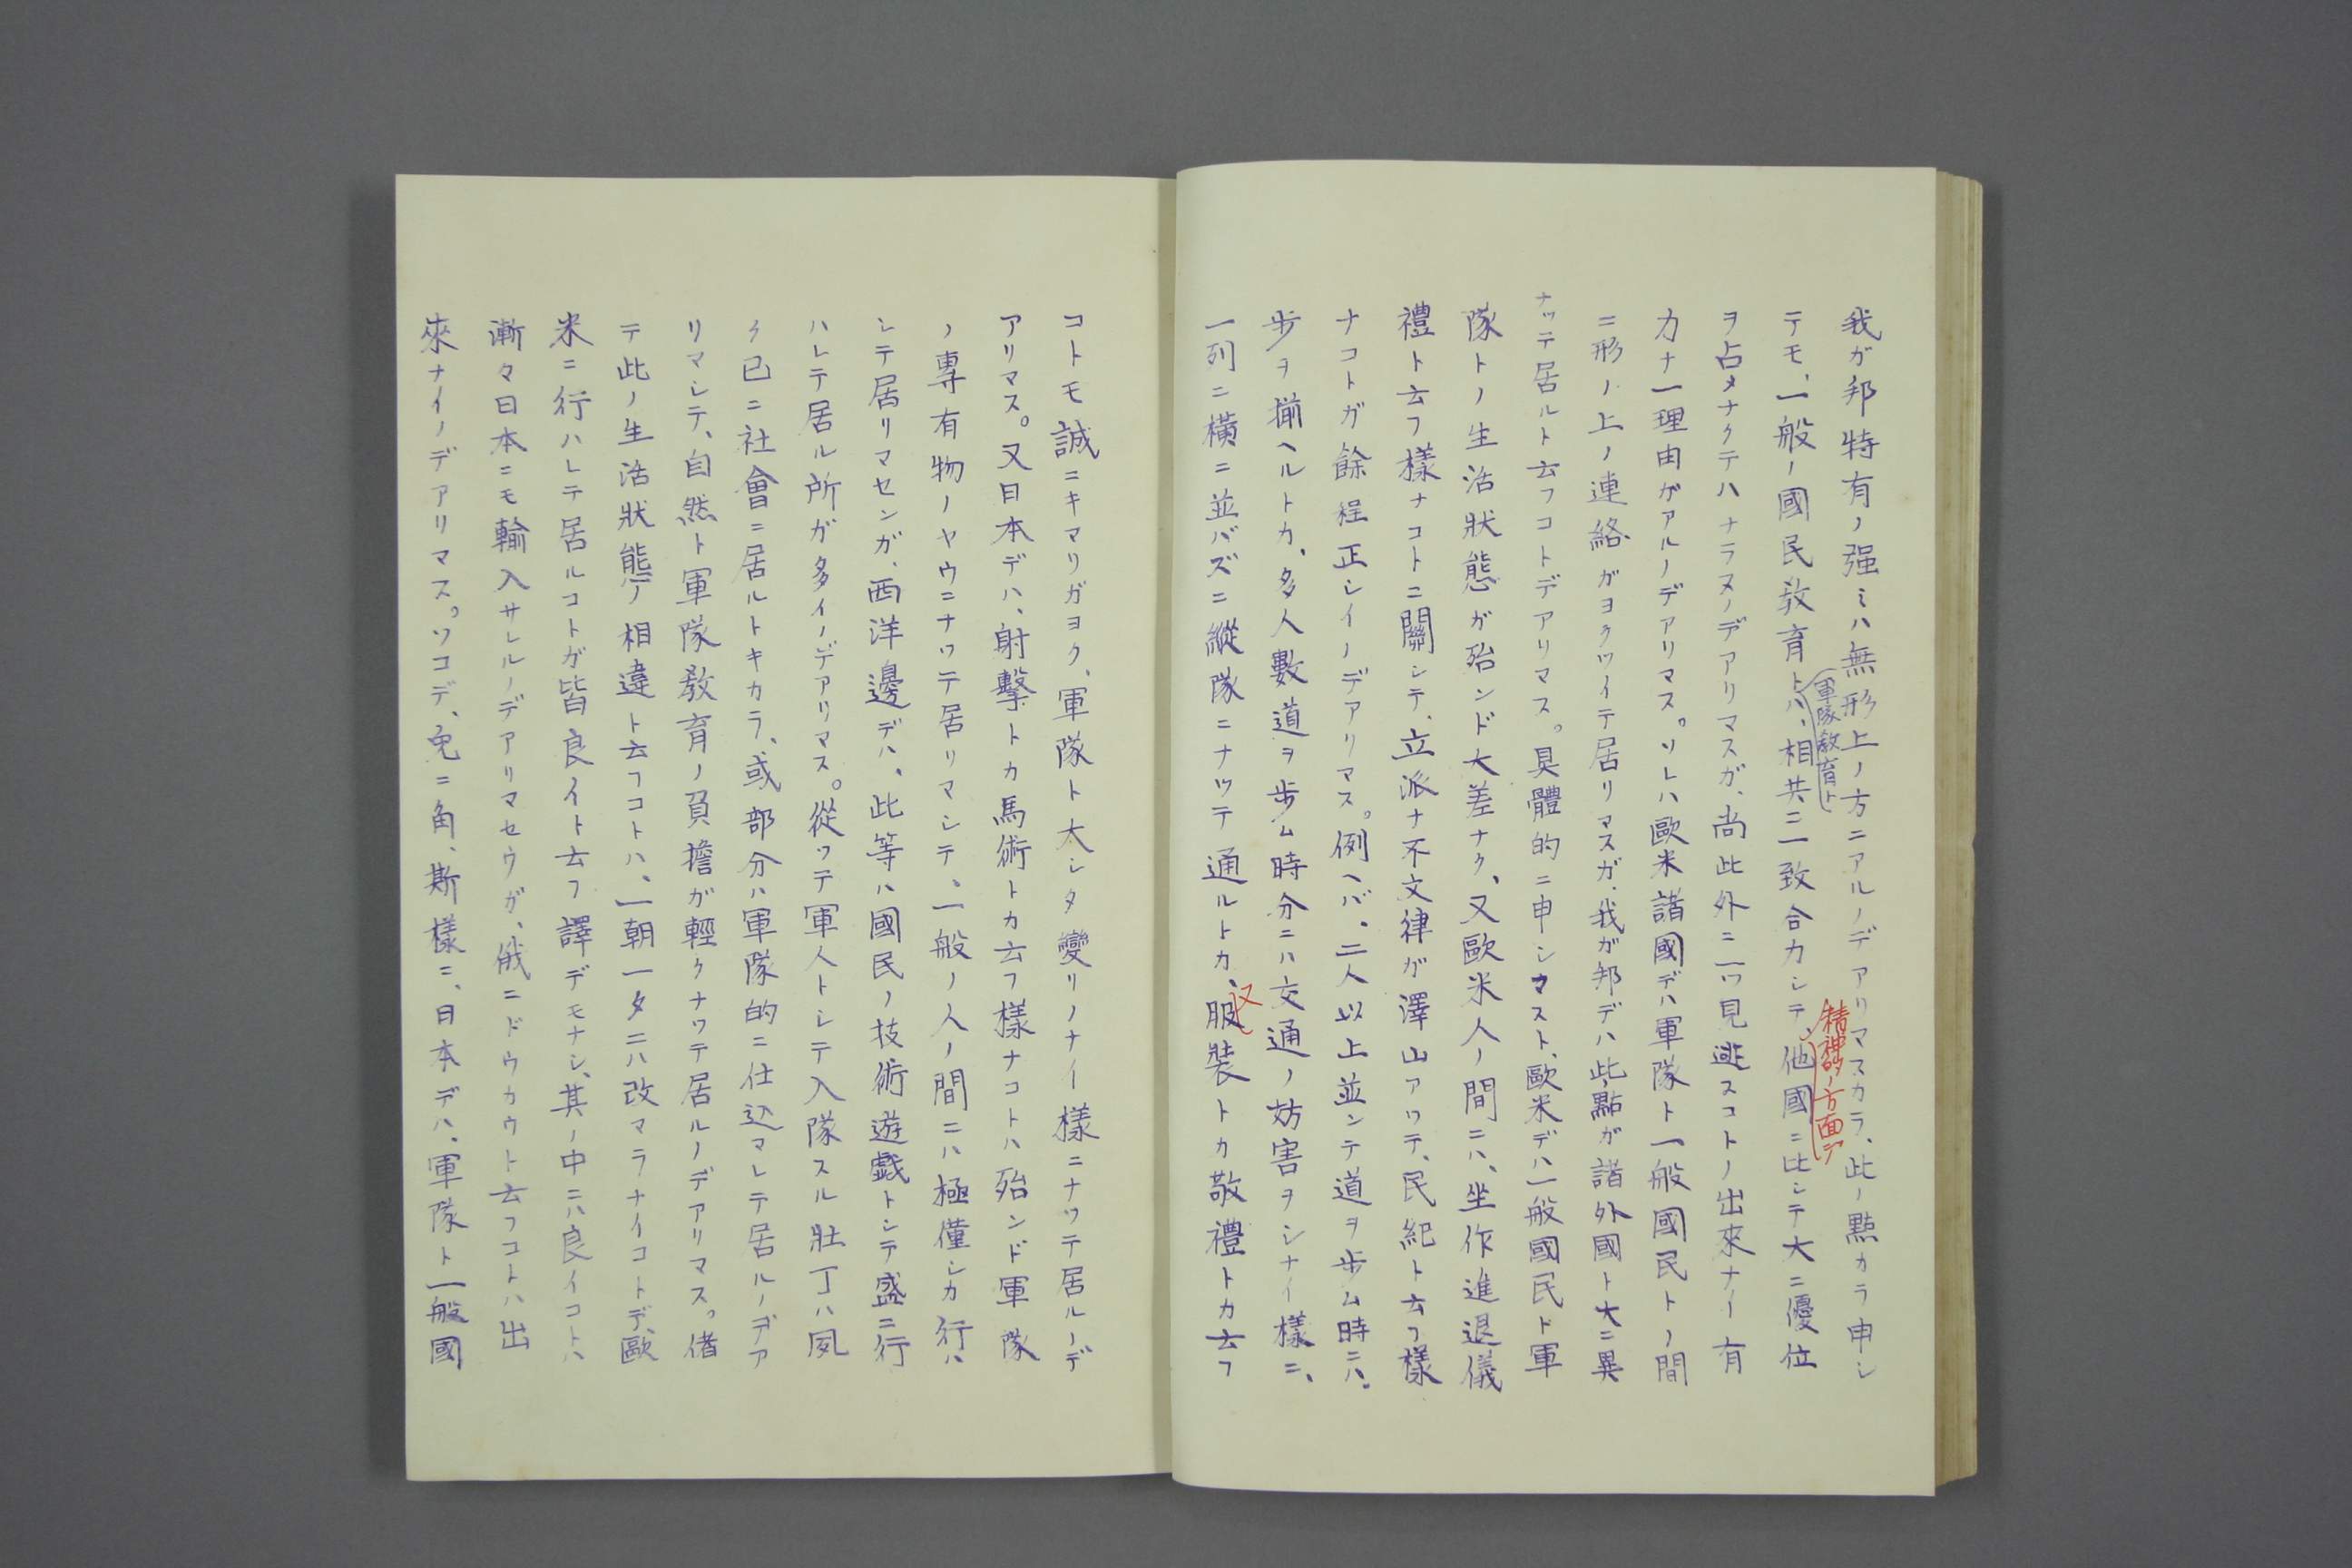 我ガ邦特有ノ强ミハ無形上ノ方ニアルノデアリマスカラ、此ノ點カラ申シ
軍隊敎育ト
精神的ノ方面デ
テモ、一般ノ國民敎育トハ、相共ニ一致合力シテ、他國ニ比シテ大ニ優位
ヲ占メナクテハナラヌノデアリマスガ、尚此外ニ一ツ見逃スコトノ出來ナイ有
力ナ一理由ガアルノデアリマス。ソレハ歐米諸國デハ軍隊ト一般國民トノ間
ニ形ノ上ノ連絡ガヨクツイテ居リマスガ、我ガ邦デハ此點ガ諸外國ト大ニ異
ナッテ居ルト云フコトデアリマス。具體的ニ申シマスト、歐米デハ一般國民ト軍
隊トノ生活狀態ガ殆ンド大差ナク、又歐米人ノ間ニハ、坐作進退儀
禮ト云フ樣ナコトニ關シテ、立派ナ不文律ガ澤山アッテ、民紀ト云フ樣
ナコトガ餘程正シイノデアリマス。例ヘバ、二人以上並ンデ道ヲ歩ム時ニハ、
歩ヲ揃ヘルトカ、多人數道ヲ歩ム時分ニハ交通ノ妨害ヲシナイ樣ニ、
一列ニ横ニ並バズニ縱隊ニナッテ通ルトカ、服裝トカ敬禮トカ云フ
又
コトモ誠ニキマリガヨク、軍隊ト大シタ變リノナイ樣ニナッテ居ルノデ
アリマス。又日本デハ、射擊トカ馬術トカ云フ樣ナコトハ殆ンド軍隊
ノ專有物ノヤウニナッテ居リマシテ、一般ノ人ノ間ニハ極僅シカ行ハ
レテ居リマセンガ、西洋邊デハ、此等ハ國民ノ技術遊戲トシテ盛ニ行
ハレテ居ル所ガ多イノデアリマス。從ッテ軍人トシテ入隊スル壯丁ハ夙
ク已ニ社會ニ居ルトキカラ、或部分ハ軍隊的ニ仕込マレテ居ルノデア
リマシテ、自然ト軍隊敎育ノ負擔ガ輕クナッテ居ルノデアリマス。偖
テ此ノ生活狀態ノ相違ト云フコトハ、一朝一夕ニハ改マラナイコトデ、歐
米ニ行ハレテ居ルコトガ皆良イト云フ譯デモナシ、其ノ中ニハ良イコトハ
漸々日本ニモ輸入サレルノデアリマセウガ、俄ニドウカウト云フコトハ出
來ナイノデアリマス。ソコデ、兎ニ角、斯樣ニ、日本デハ、軍隊ト一般國